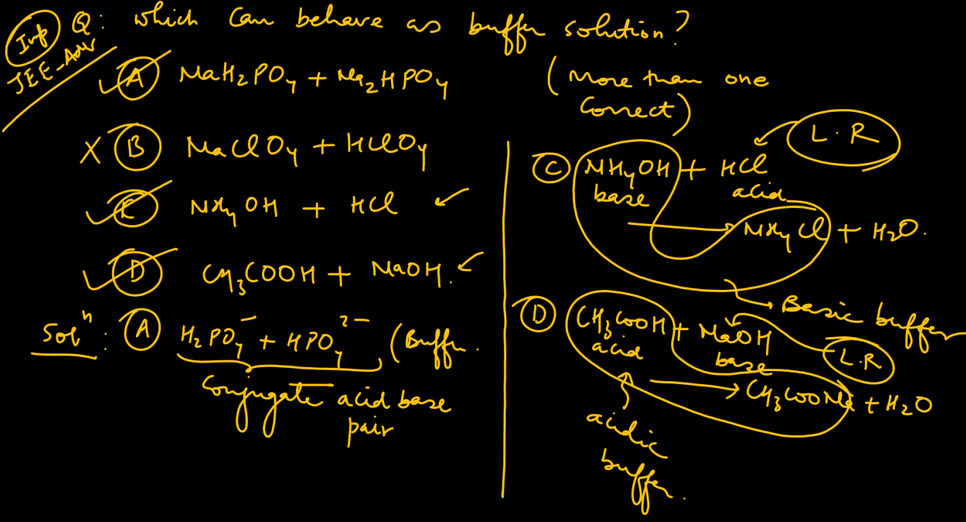 Imp
JEE-Adv
Q: Which can behave as buffer solution?
(More than one
Correct)
✓ A NaH₂PO₄ + Na₂HPO₄
X B NaClO₄ + HClO₄
✓ C NH₄OH + HCl ✓
✓ D CH₃COOH + NaOH. ✓
Solⁿ: A H₂PO₄⁻ + HPO₄²⁻ (Buffer.
Conjugate acid base
pair
L.R
C NH₄OH + HCl
base acid
→ NH₄Cl + H₂O.
Basic buffer
D CH₃COOH + NaOH
acid base
L.R
→ CH₃COONa + H₂O
acidic
buffer.